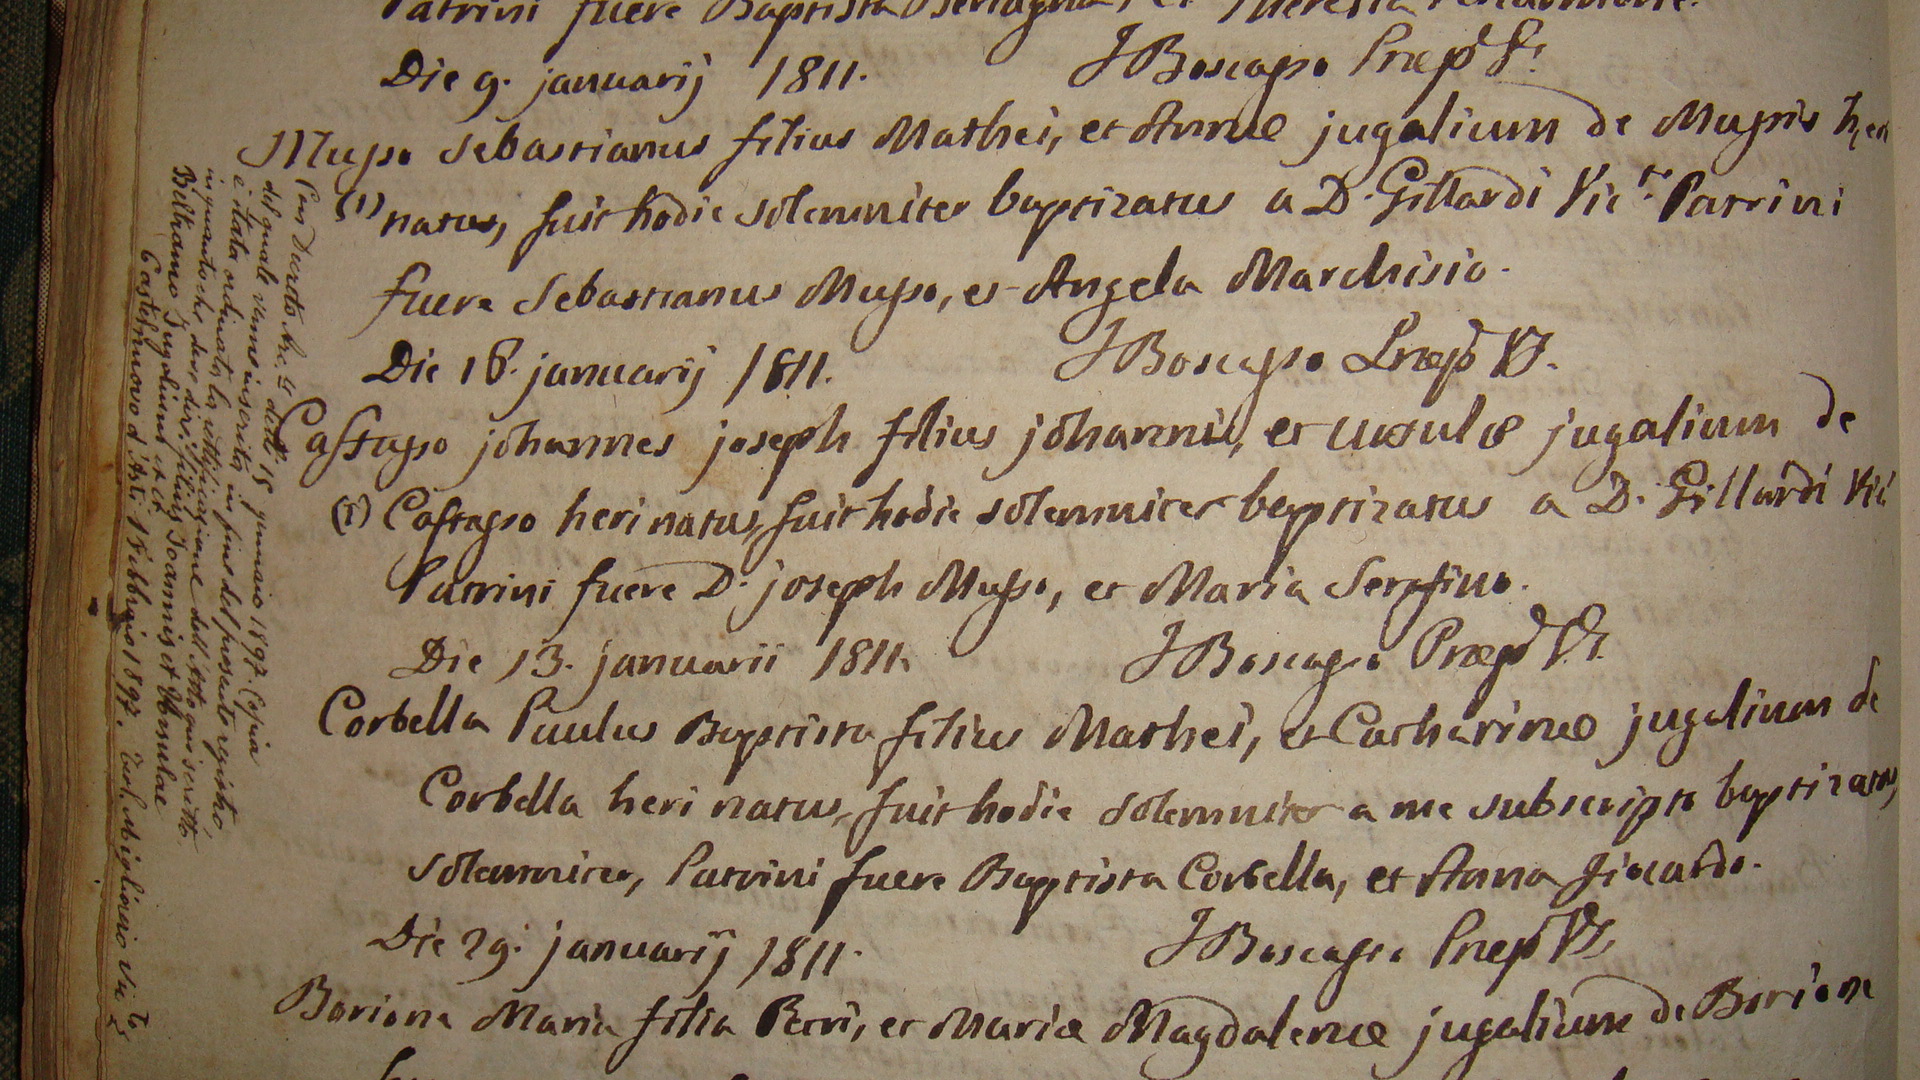 Patrini fuere Baptista Bertagna, et Theresia
Die 9. januarij 1811. J Boscasso Præp.
Musso Sebastianus filius Mathei, et Annæ jugalium de Mussis heri
(1) natus, fuit hodie solemniter baptizatus a D. Gillardi Vic.
Patrini
fuere Sebastianus Musso, et Angela Marchisio.
Die 18. januarij 1811. J Boscasso Præp
Castasso johannes joseph filius johannis, et Ursulæ jugalium de
(1) Castasso heri natus, fuit hodie solemniter baptizatus a D. Gillardi Vic
Patrini fuere D. joseph Musso, et Maria Serafino.
Die 13. januarii 1811. J Boscasso Præp
Corbella Paulus Baptista filius Mathei, et Catharinæ jugalium de
Corbella heri natus, fuit hodie solemniter a me subscripto baptizatus,
solemniter, Patrini fuere Baptista Corbella, et Anna Ficardo.
Die 29. januarij 1811. J Boscasso Præp
Boriona Maria filia Petri, et Mariæ Magdalenæ jugalium de Boriona
Con Decreto 15 gennaio 1897. Copia
del quale venne inserita in fine del presente registro,
è stata ordinata la rettificazione dell'atto quì scritto
in quanto che deve dirsi: filius Joannis et Ursulae
Beltramo Jugalium et ct.
Castelnuovo d'Asti 1 Febbraio 1897.